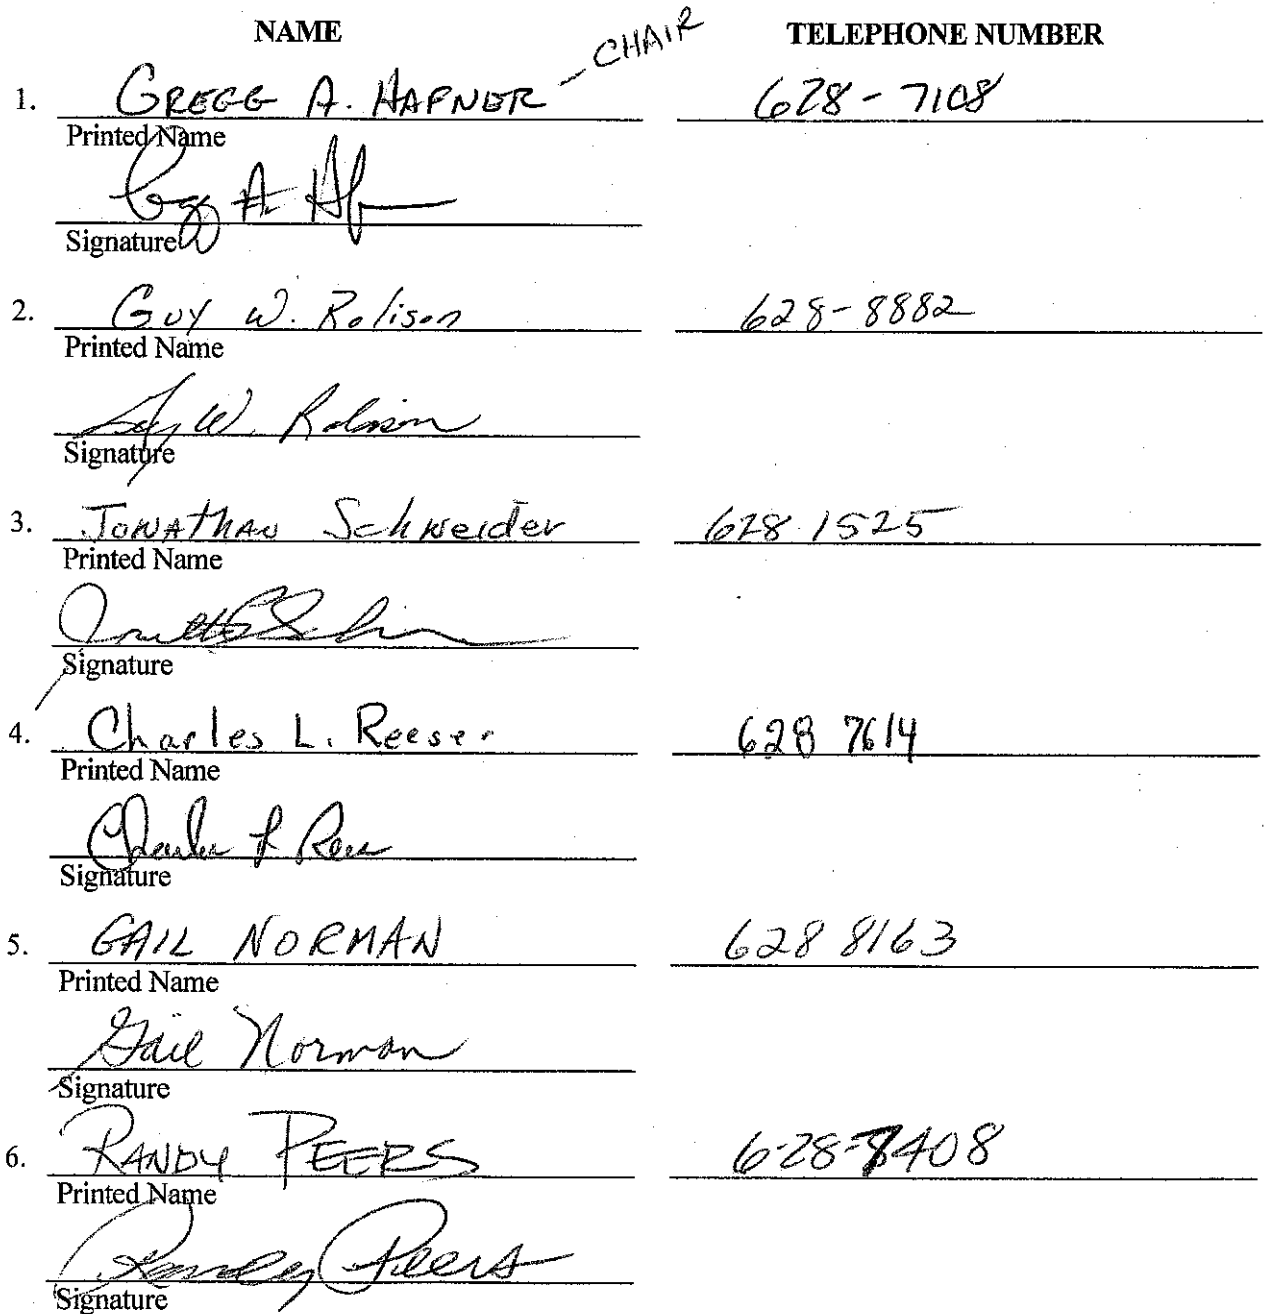 NAME TELEPHONE NUMBER
- CHAIR
1. GREGG A. HAFNER 628-7108
Printed Name
Signature
2. Guy W. Rolison 628-8882
Printed Name
Guy W. Rolison
Signature
3. Jonathan Schneider 628 1525
Printed Name
Signature
4. Charles L. Reeser 628 7614
Printed Name
Charles L Reeser
Signature
5. GAIL NORMAN 628 8163
Printed Name
Gail Norman
Signature
6. RANDY PEERS 628-7408
Printed Name
Randy Peers
Signature